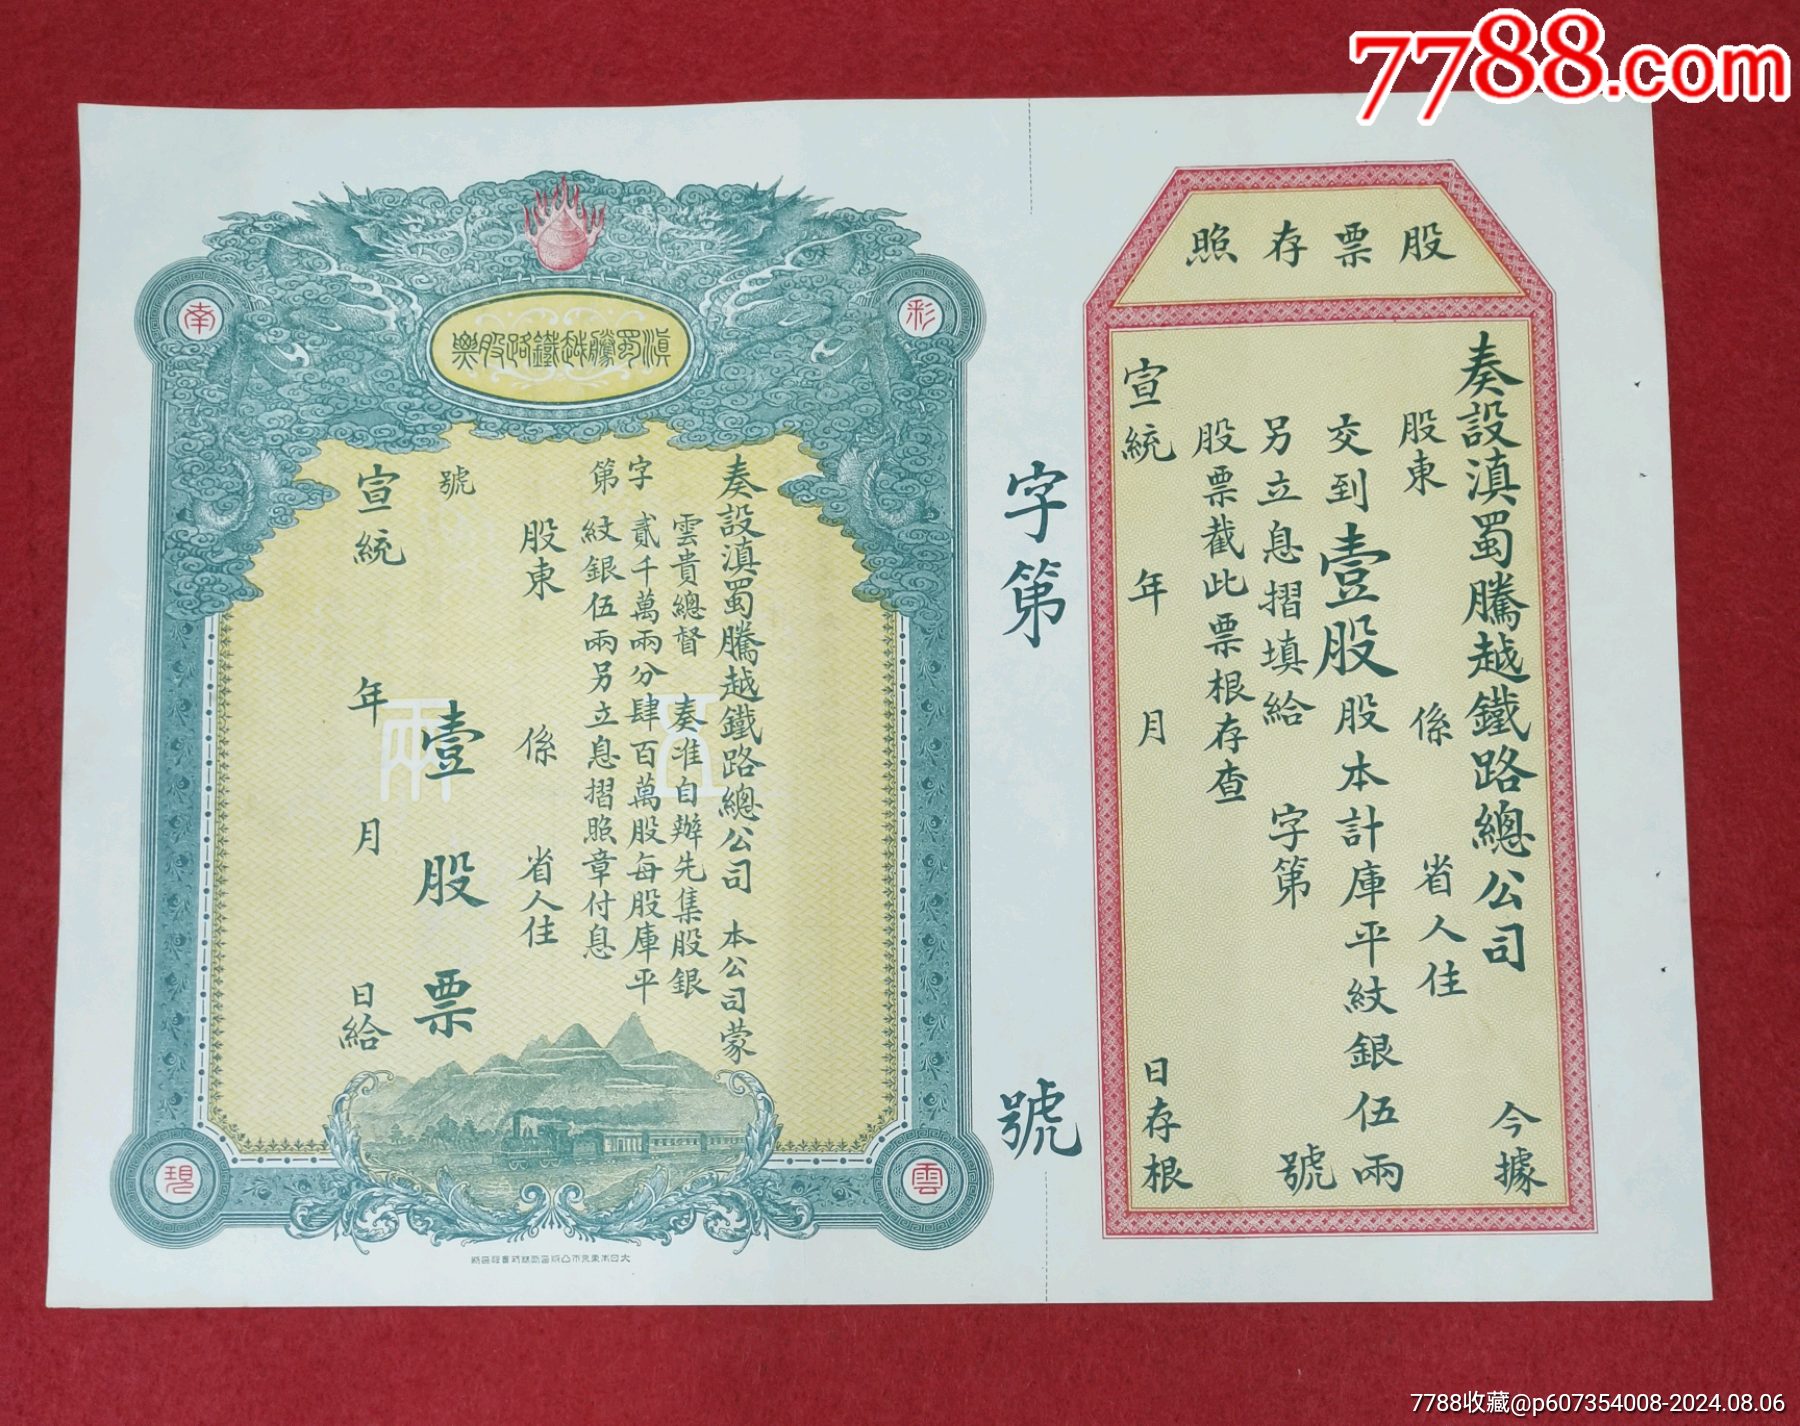 7788.com
股票存照
奏設滇蜀騰越鐵路總公司 今據
股東 係 省人住
交到壹股股本計庫平紋銀伍兩
另立息摺填給 字第 號
股票截此票根存查
宣統 年 月 日存根
字第 號
彩
南
滇蜀騰越鐵路股票
奏設滇蜀騰越鐵路總公司 本公司蒙
雲貴總督 奏准自辦先集股銀
貳千萬兩分肆百萬股每股庫平
紋銀伍兩另立息摺照章付息
字第 號
股東 係 省人住
壹股票
宣統 年 月 日給
伍
兩
雲
現
7788收藏@p607354008-2024.08.06